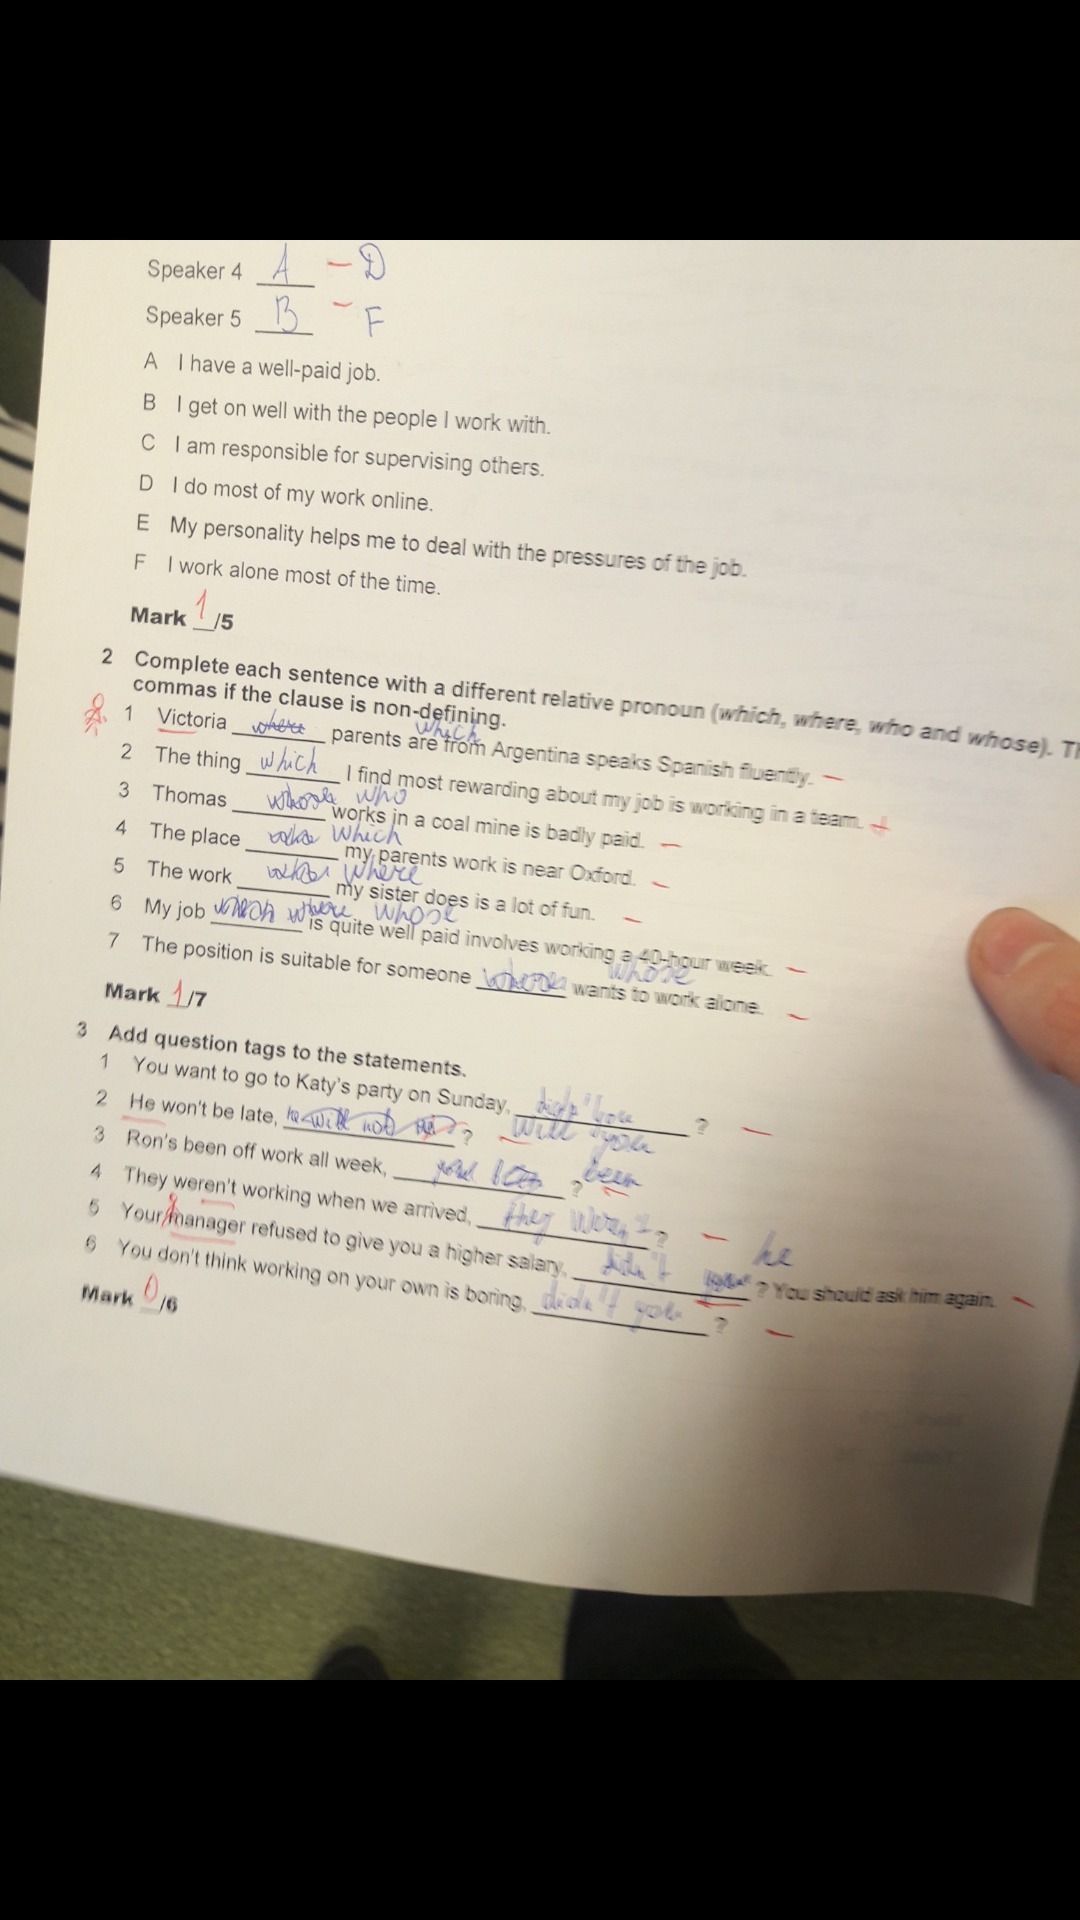 Speaker 4 A – D
Speaker 5 B – F
A I have a well-paid job.
B I get on well with the people I work with.
C I am responsible for supervising others.
D I do most of my work online.
E My personality helps me to deal with the pressures of the job.
F I work alone most of the time.
Mark 1/5
2 Complete each sentence with a different relative pronoun (which, where, who and whose).
commas if the clause is non-defining.
1 Victoria where which parents are from Argentina speaks Spanish fluently. –
2 The thing which I find most rewarding about my job is working in a team. +
3 Thomas who works in a coal mine is badly paid. –
4 The place which my parents work is near Oxford. –
5 The work where my sister does is a lot of fun. –
6 My job which where whose is quite well paid involves working a 40-hour week. –
7 The position is suitable for someone whose wants to work alone. –
Mark 1/7
3 Add question tags to the statements.
1 You want to go to Katy's party on Sunday, ? –
2 He won't be late, he will not ? – will you
3 Ron's been off work all week, been ? –
4 They weren't working when we arrived, they weren't ? –
5 Your manager refused to give you a higher salary, didn't he ? You should ask him again. –
6 You don't think working on your own is boring, didn't you ? –
Mark 0/6